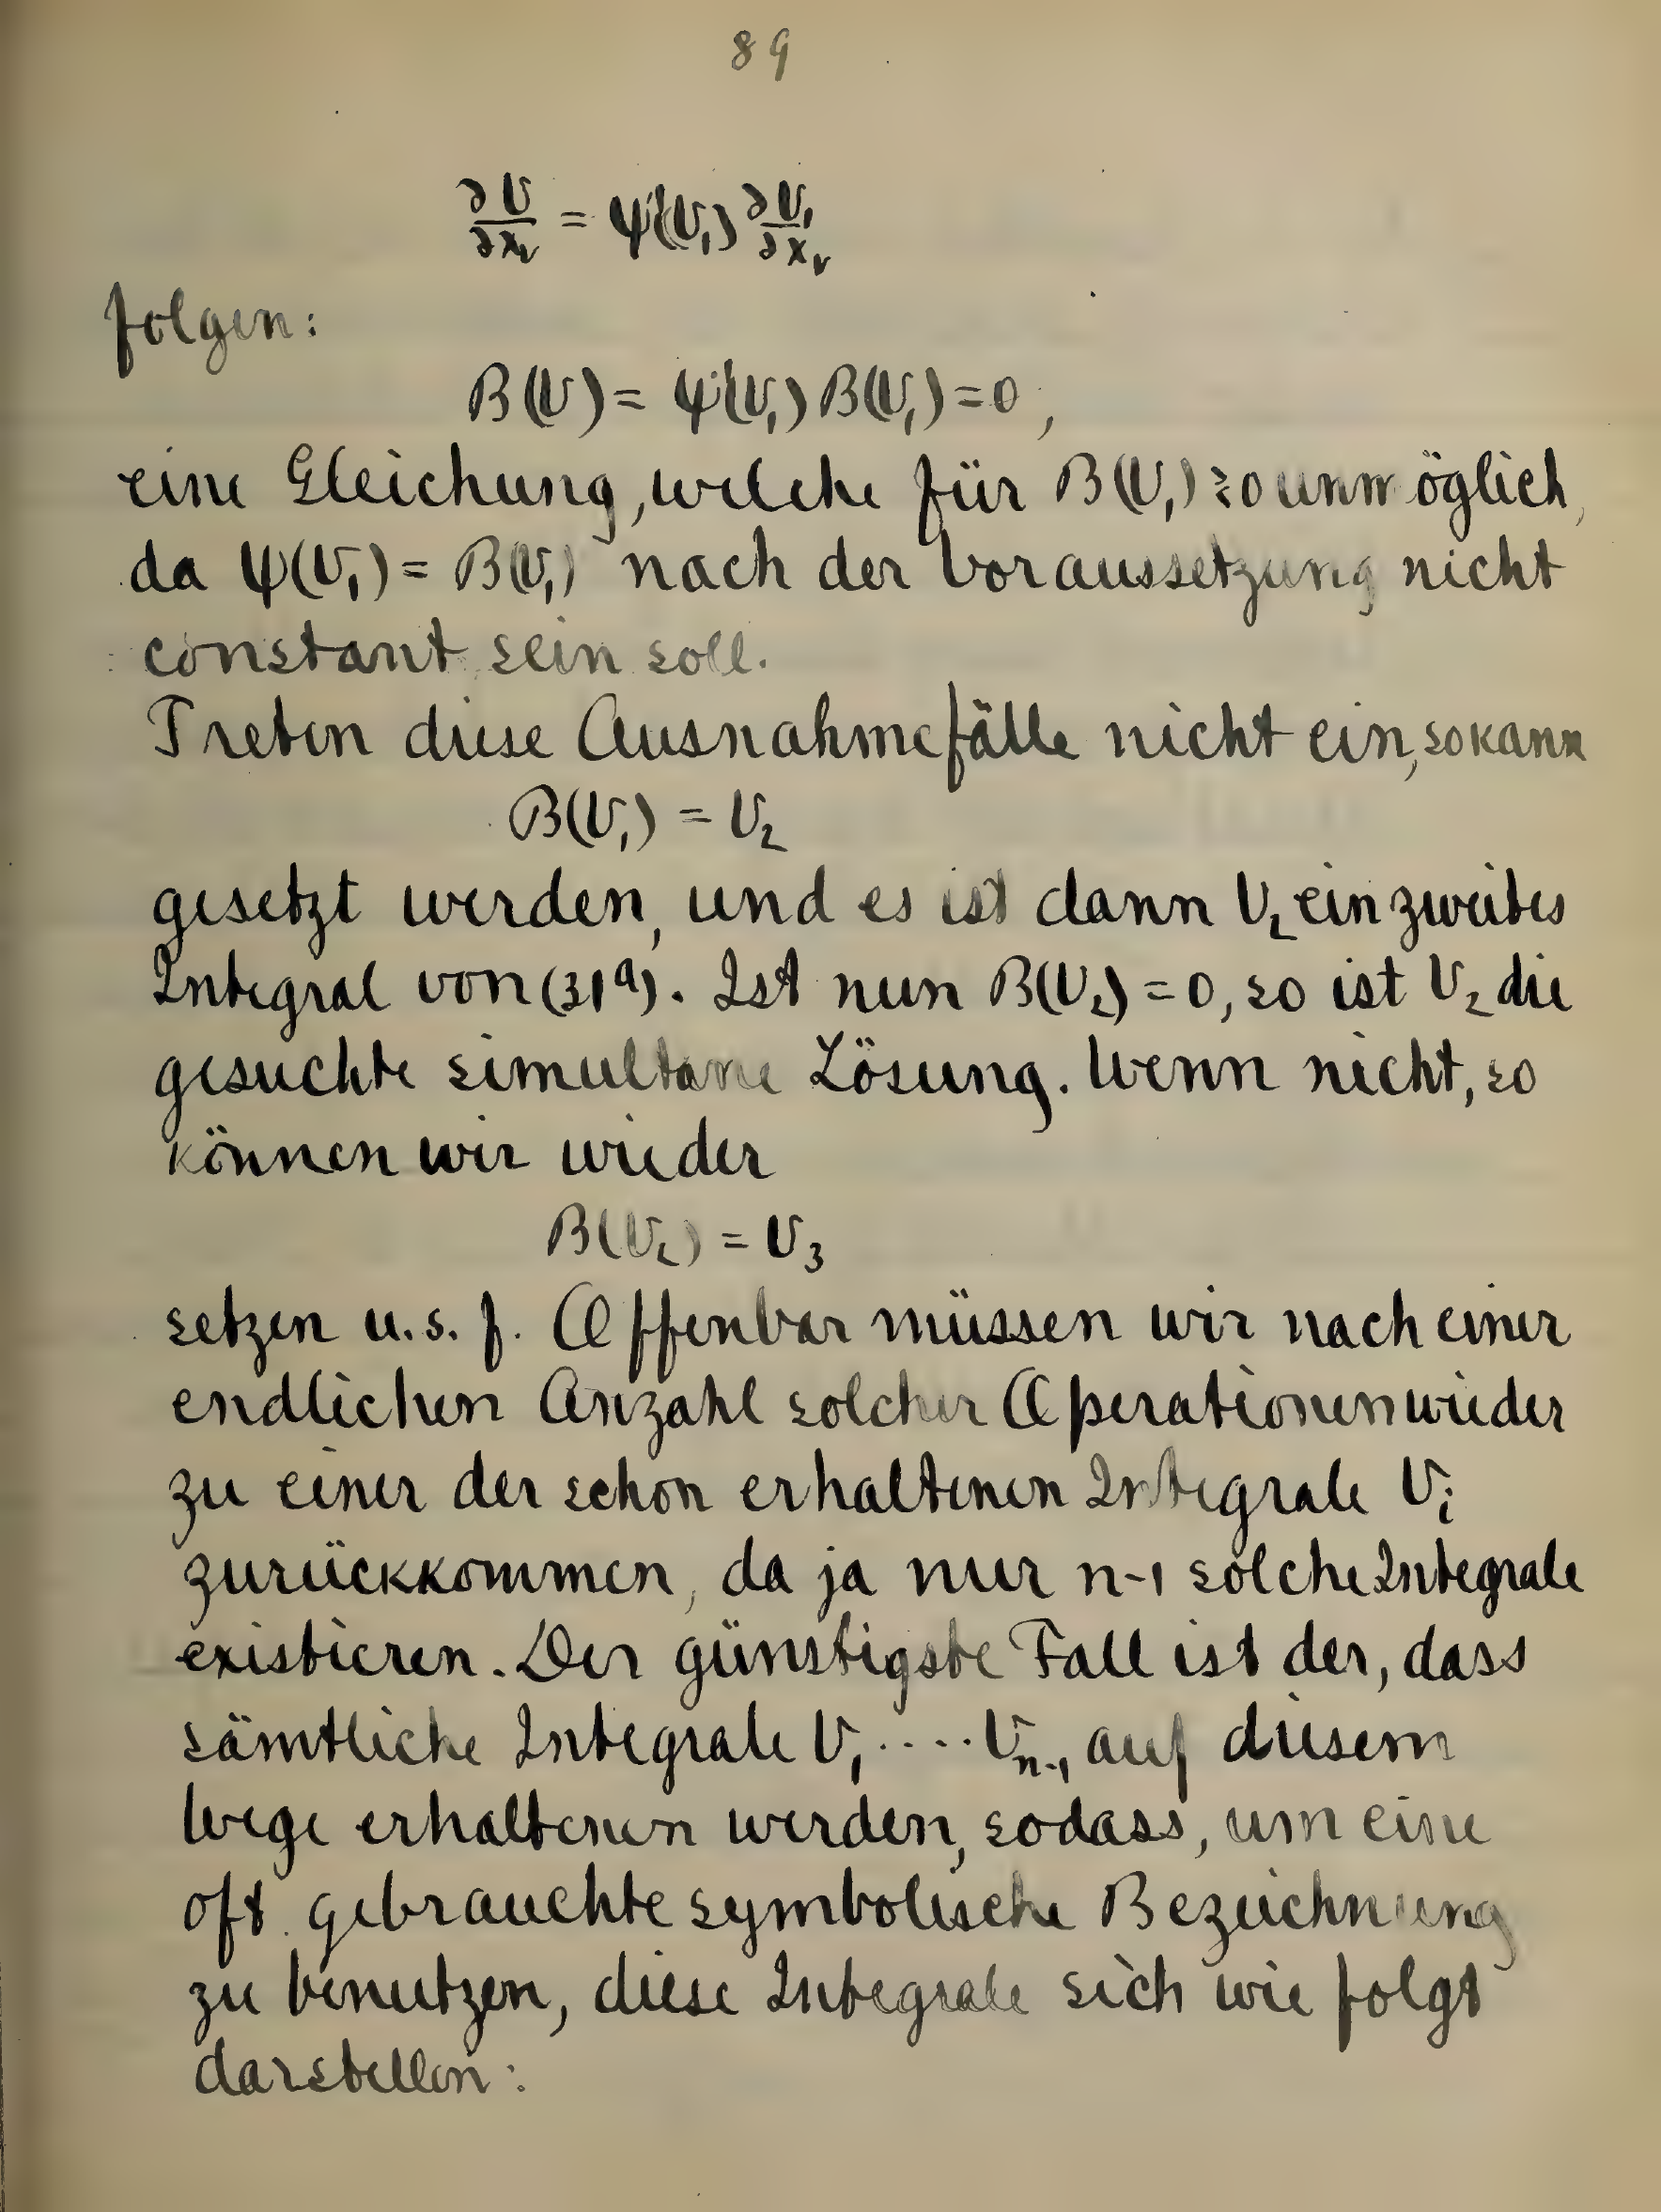 89
∂U/∂x_ν = ψ'(U₁) ∂U₁/∂x_ν
folgen:
B(U) = ψ'(U₁) B(U₁) = 0,
eine Gleichung, welche für B(U₁) ≷ 0 unmöglich,
da ψ(U₁) = B(U₁) nach der Voraussetzung nicht
constant sein soll.
Treten diese Ausnahmefälle nicht ein, so kann
B(U₁) = U₂
gesetzt werden, und es ist dann U₂ ein zweites
Integral von (31a). Ist nun B(U₂) = 0, so ist U₂ die
gesuchte simultane Lösung. Wenn nicht, so
können wir wieder
B(U₂) = U₃
setzen u.s.f. Offenbar müssen wir nach einer
endlichen Anzahl solcher Operationen wieder
zu einer der schon erhaltenen Integrale Uᵢ
zurückkommen, da ja nur n-1 solche Integrale
existieren. Der günstigste Fall ist der, dass
sämtliche Integrale U₁ ···· Uₙ₋₁ auf diesem
Wege erhaltenen werden, sodass, um eine
oft gebrauchte symbolische Bezeichnung
zu benutzen, diese Integrale sich wie folgt
darstellen: